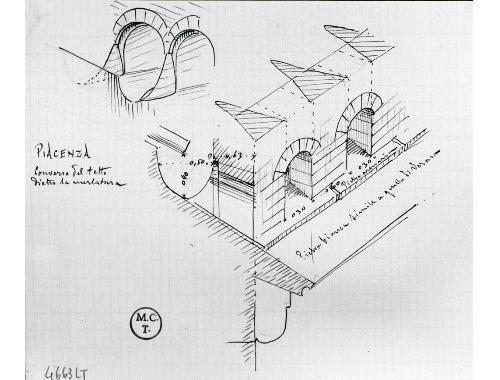 PIACENZA
Conversa del tetto
Dietro la merlatura
0,50
0,63
0,90
0.30
0.30
Pietra bianca simile a quella di Verona
M.C.
T.
4663LT